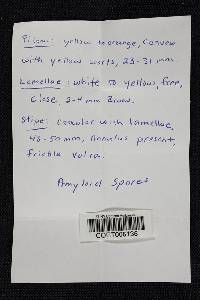 Pileus: yellow to orange, Convex
with yellow warts, 23-31 mm.
Lamellae: white to yellow, free,
close, 3-4 mm Broad.
Stipe: concolor with lamellae,
46-50 mm, Annulus present,
friable volva.
Amyloid Spores